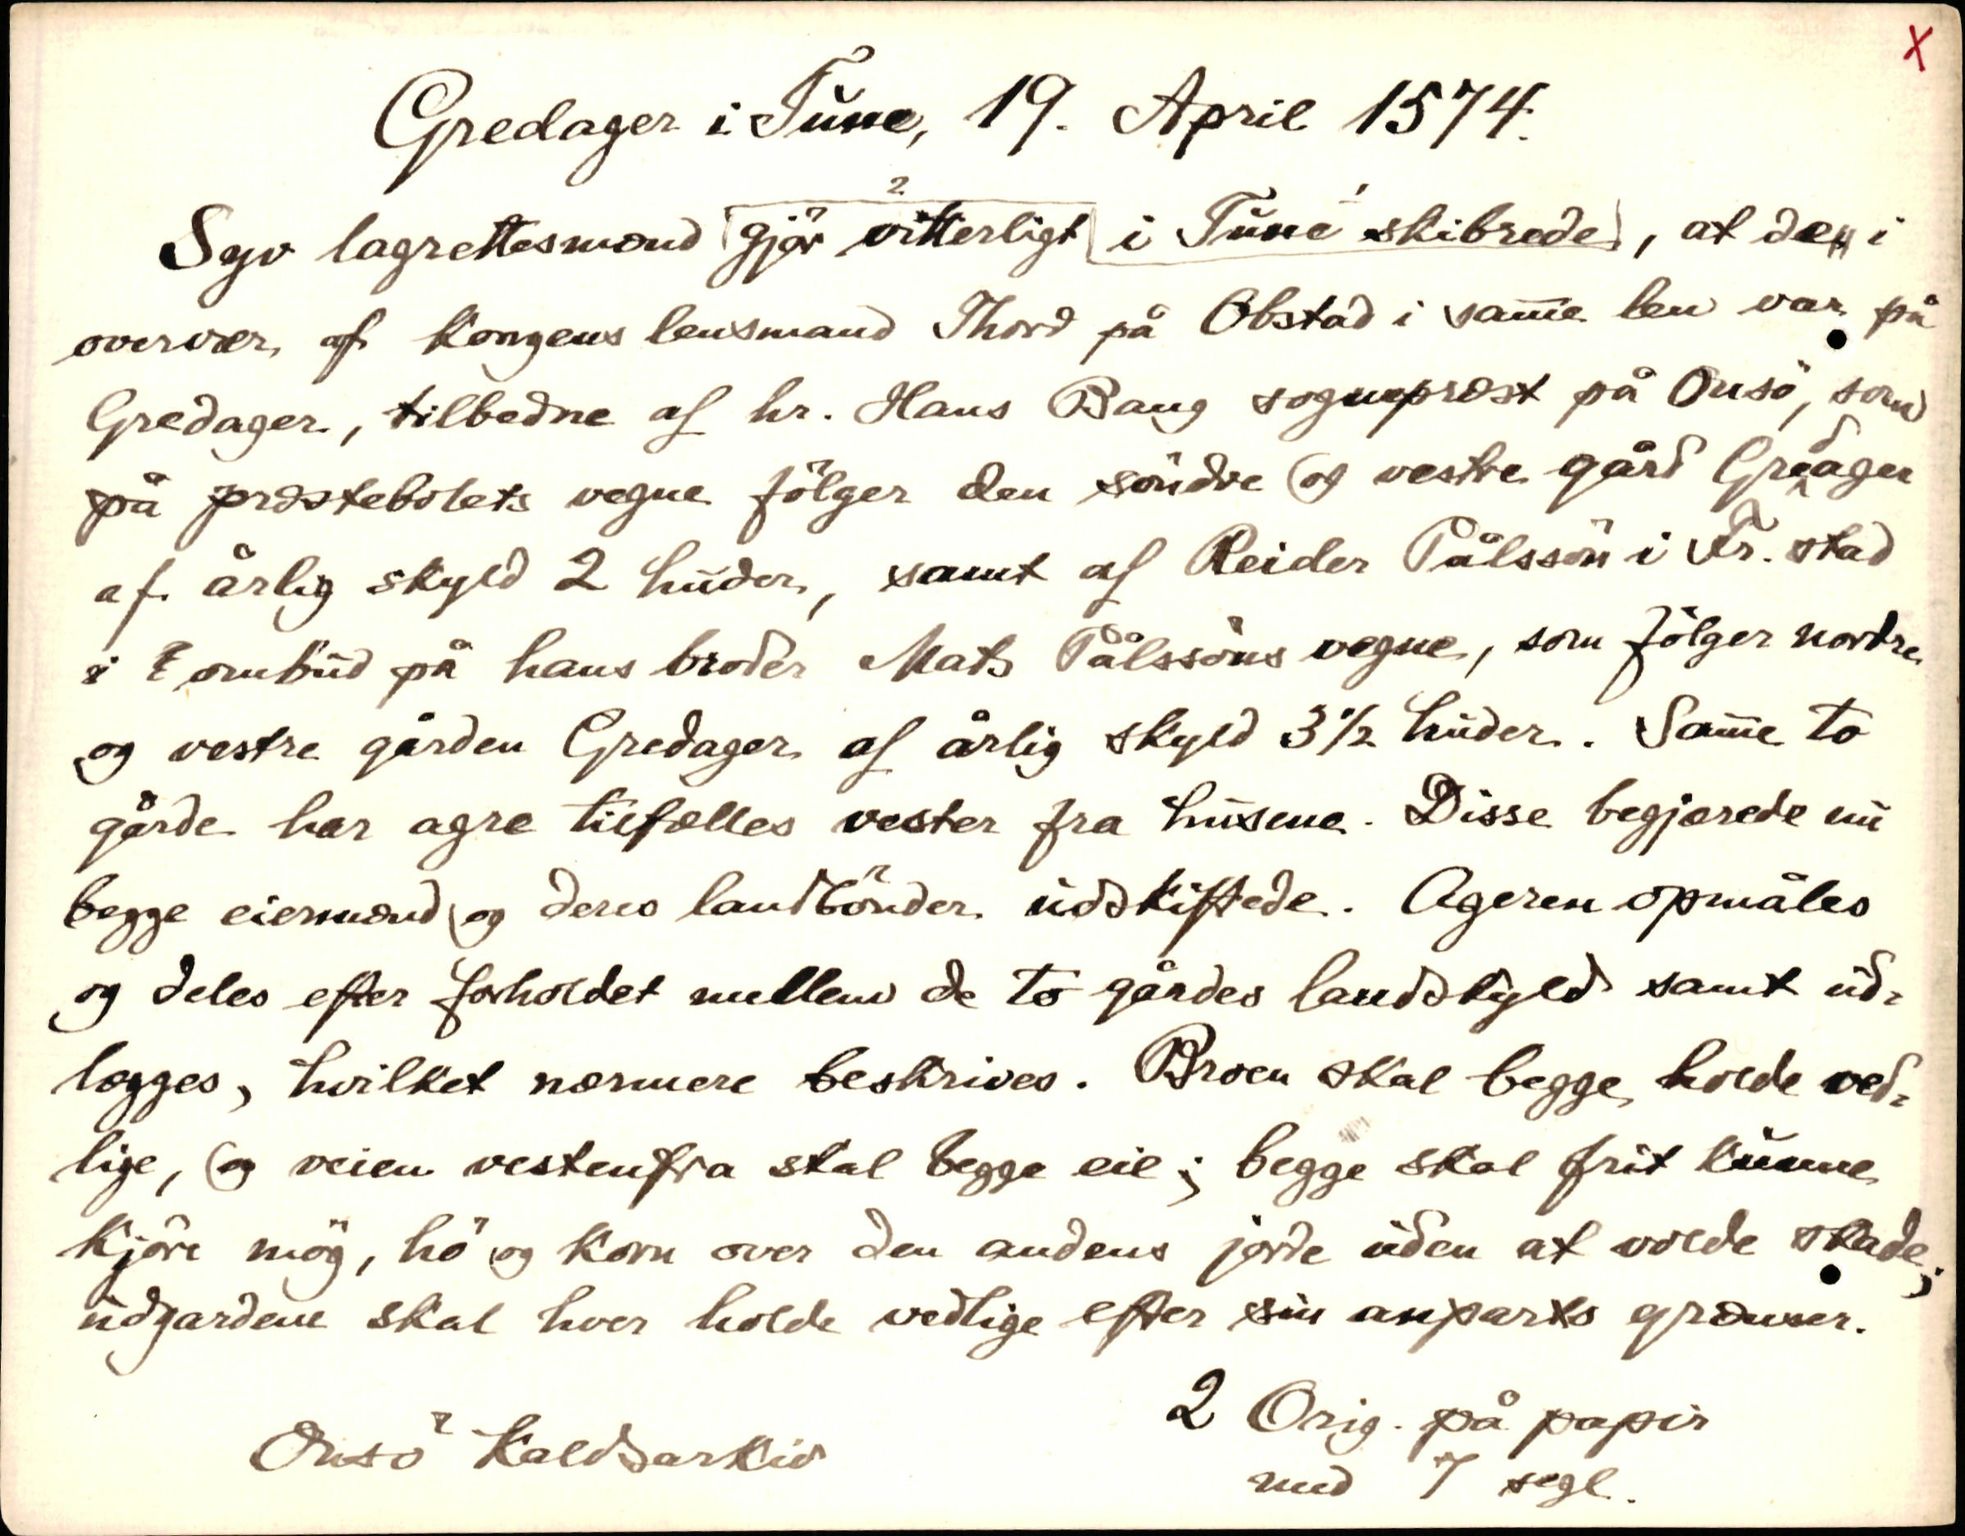 X
Gredager i Tune, 19. April 1574.
Syv lagrettesmænd gjör vitterligt i Tune skibrede, at de i
overvær af kongens lensmand Thord på Obstad i sam̄e len var på
Gredager, tilbedne af hr. Hans Bang sogneprest på Onsö, som
på præstebolets vegne fölger den söndre og vestre gård Gredager
af årlig skyld 2 huder, samt af Reider Pålssön i Fr. stad
i ombud på hans broder Mats Pålssöns vegne, som fölger nordre
og vestre gården Gredager af årlig skyld 3 1/2 huder. Sam̄e to
gårde har agre tilfælles vester fra husene. Disse begjærede nu
begge eiermænd og deres landbönder udskiftede. Ageren opmåles
og deles efter forholdet mellem de to gårdes landskyld samt ud-
lægges, hvilket nærmere beskrives. Broen skal begge holde ved-
lige, og veien vestenfra skal begge eie; begge skal frit kunne
kjöre mög, hö og korn over den andens jorde uden at volde skade;
udgardene skal hver holde vedlige efter sin anparts grænser.
2 Orig. på papir
med 7 segl.
Onsö Kaldsarkiv